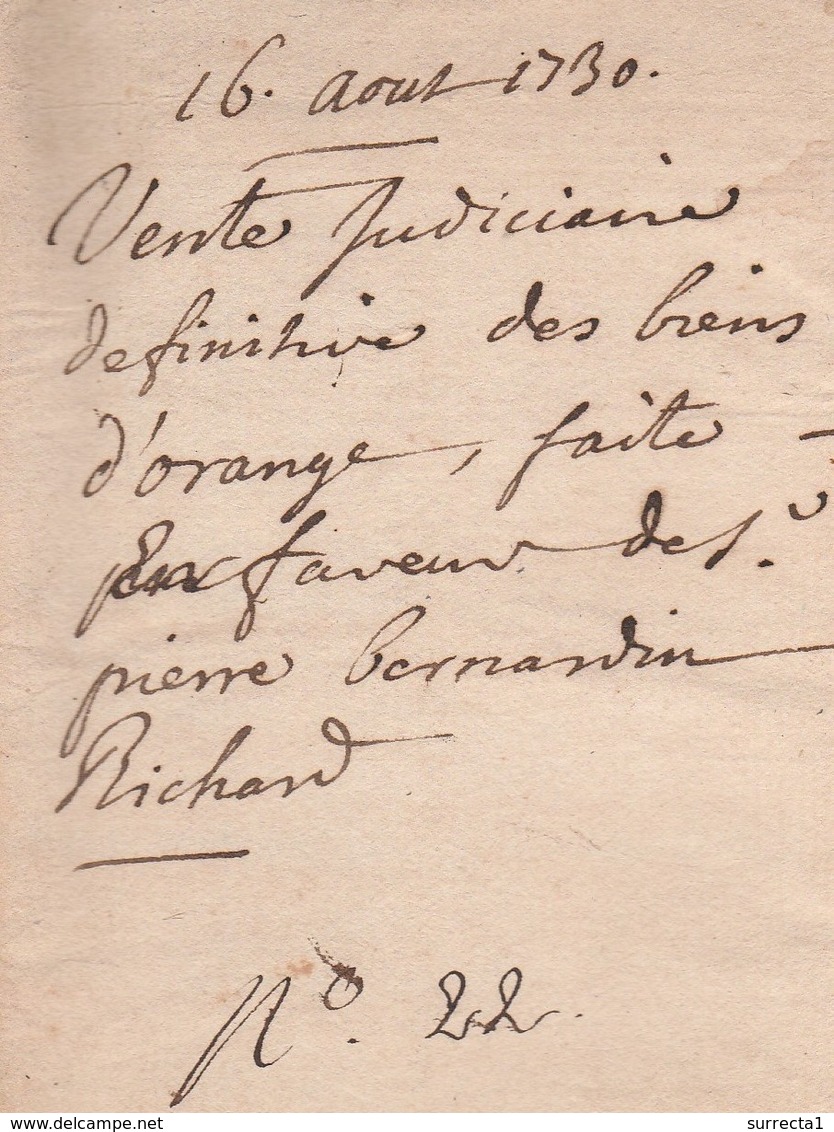 16. Aout 1730.
Vente Judiciaire
definitive des biens
d'orange, faite
En faveur de s.r
pierre bernardin
Richard
N.o 22.
delcampe.net
surrecta1